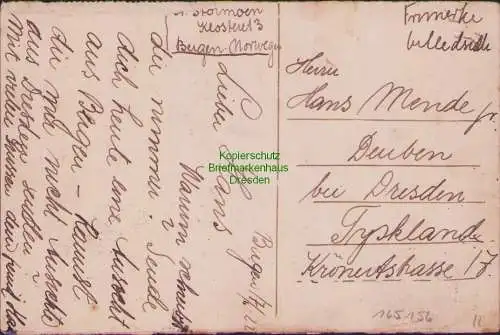 Stormoen
Klosteret 3
Bergen Norwegen
Frimerke
billedside
Bergen 17/
Lieber Hans
Warum schreibst
du nimmer? Sende
dich heute eine Ansicht
aus Bergen – Kannst
du mir nicht Ansicht
aus Dresden senden?
Mit vielen Grüssen dein
Herrn
Hans Mende jr.
Deuben
bei Dresden
Tyskland
Krönertstrasse 17
165156
Kopierschutz
Briefmarkenhaus
Dresden